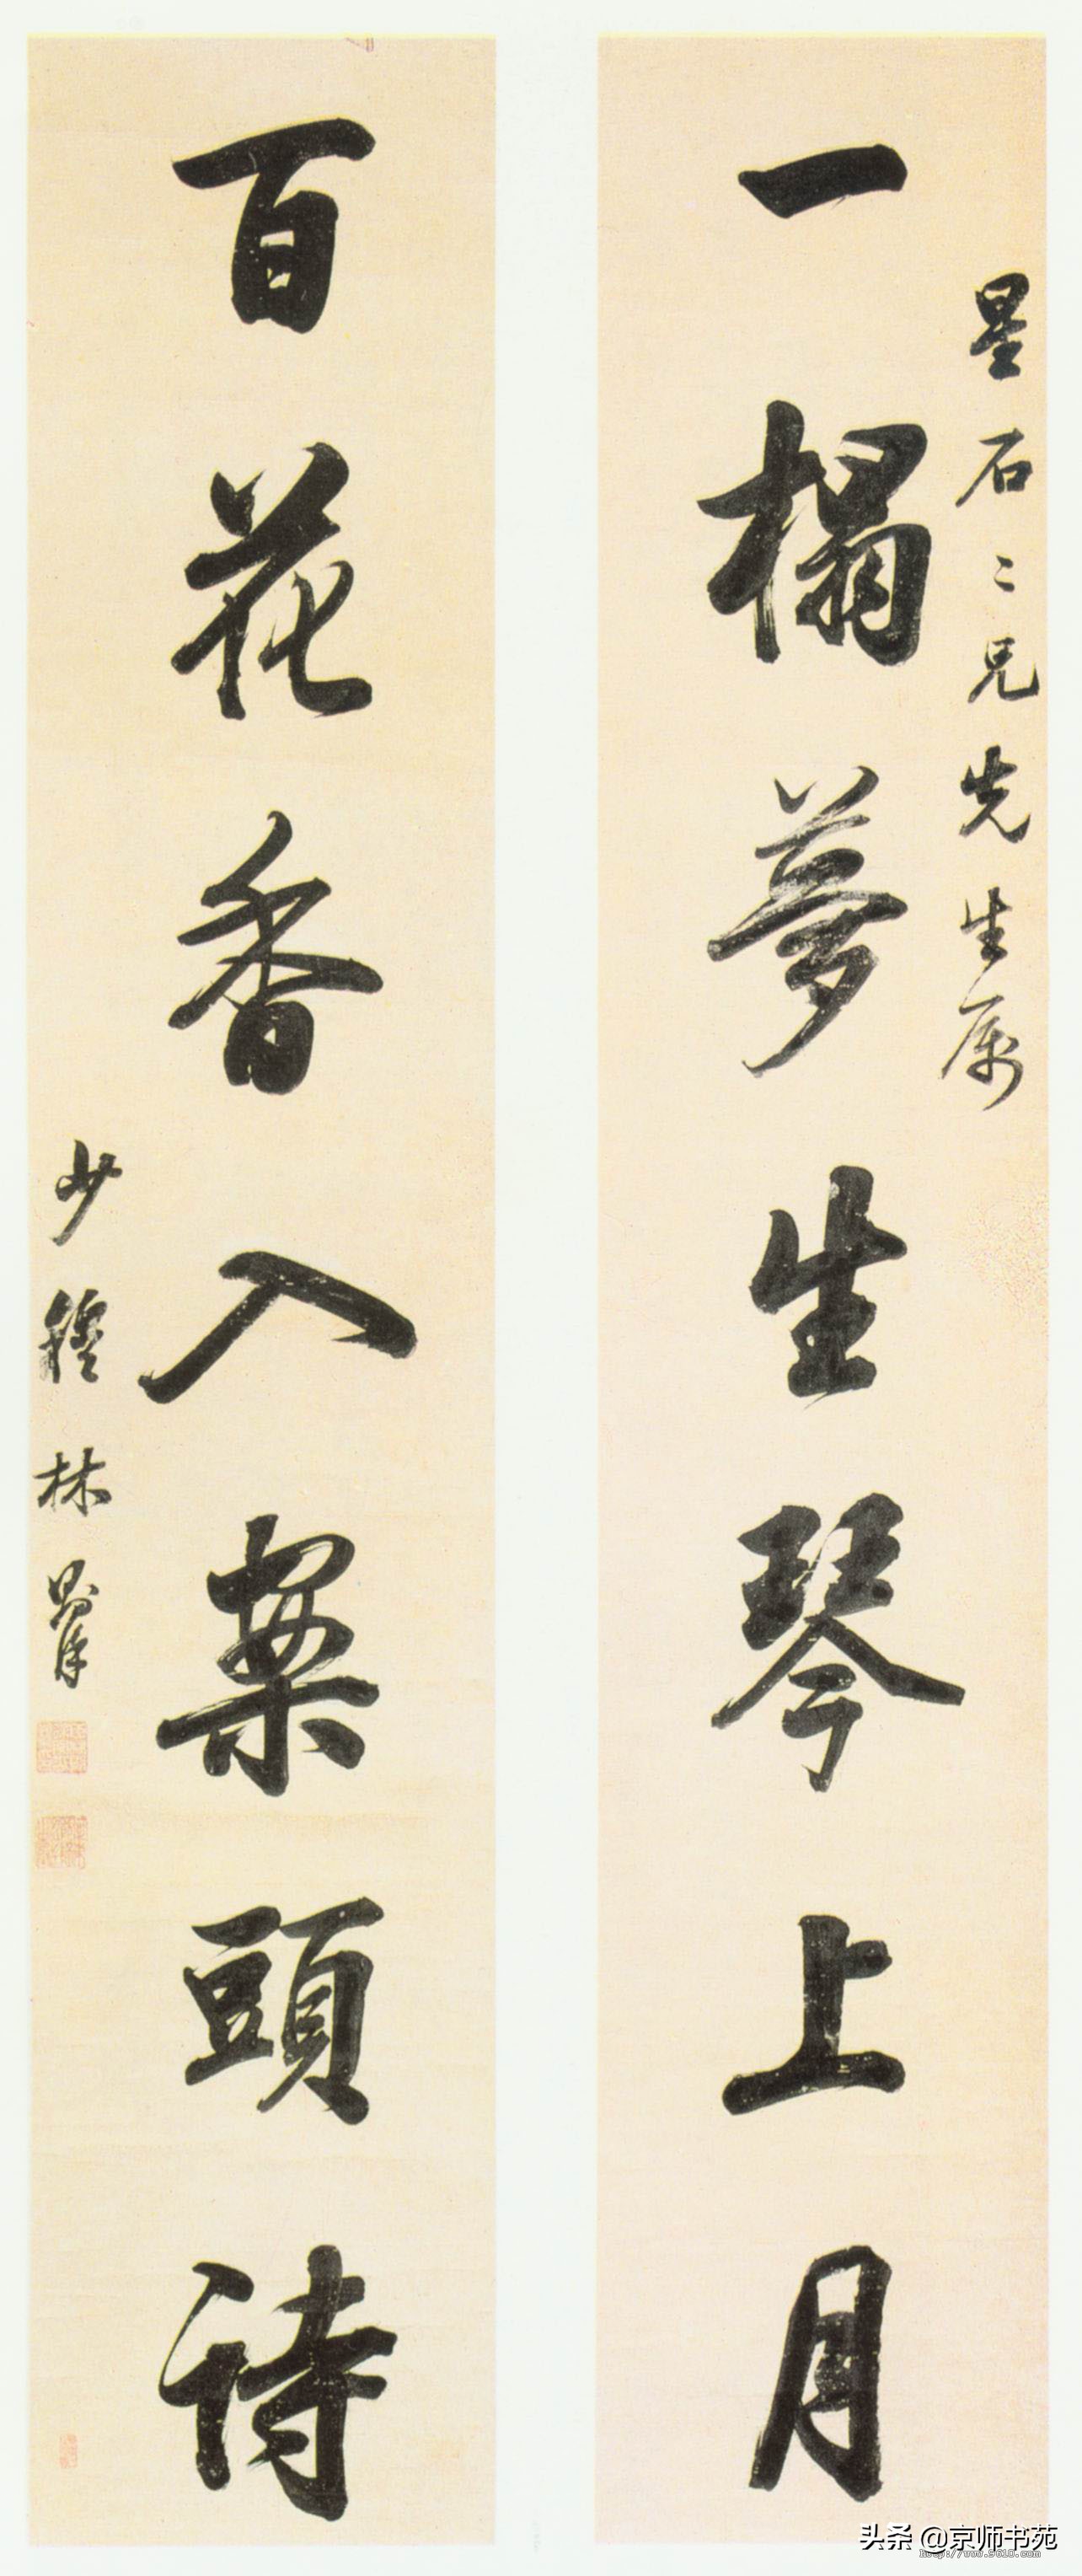 星石二兄先生属
一榻夢生琴上月
百花香入案頭诗
少穆林則徐
头条 @京师书苑
http://www.9610.com